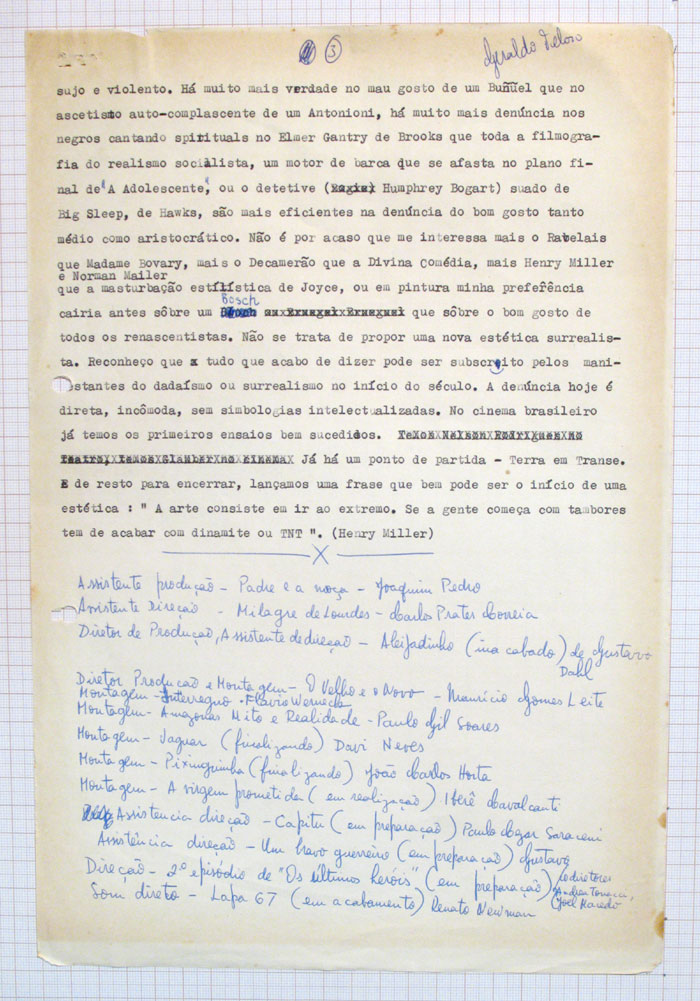 3
Geraldo Veloso
sujo e violento. Há muito mais verdade no mau gosto de um Buñuel que no
ascetismo auto-complascente de um Antonioni, há muito mais denúncia nos
negros cantando spirituals no Elmer Gantry de Brooks que toda a filmogra-
fia do realismo socialista, um motor de barca que se afasta no plano fi-
nal de "A Adolescente", ou o detetive ( Humphrey Bogart) suado de
Big Sleep, de Hawks, são mais eficientes na denúncia do bom gosto tanto
médio como aristocrático. Não é por acaso que me interessa mais o Rabelais
que Madame Bovary, mais o Decamerão que a Divina Comédia, mais Henry Miller
e Norman Mailer
que a masturbação estilística de Joyce, ou em pintura minha preferência
Bosch
cairia antes sôbre um que sôbre o bom gosto de
todos os renascentistas. Não se trata de propor uma nova estética surrealis-
ta. Reconheço que tudo que acabo de dizer pode ser subscrito pelos mani-
estantes do dadaísmo ou surrealismo no início do século. A denúncia hoje é
direta, incômoda, sem simbologias intelectualizadas. No cinema brasileiro
já temos os primeiros ensaios bem sucedidos. Temos Nelson Rodrigues no
Teatro, temos Glauber no cinema Já há um ponto de partida - Terra em Transe.
E de resto para encerrar, lançamos uma frase que bem pode ser o início de uma
estética : " A arte consiste em ir ao extremo. Se a gente começa com tambores
tem de acabar com dinamite ou TNT ". (Henry Miller)
Assistente produção - Padre e a moça - Joaquim Pedro
Assistente Direção - Milagre de Lourdes - Carlos Prates Correia
Diretor de Produção, Assistente de direção - Aleijadinho (inacabado) de Gustavo
Dahl
Diretor Produção e Montagem - O Velho e o Novo - Maurício Gomes Leite
Montagem - Interregno - Flávio Werneck
Montagem - Amazonas Mito e Realidade - Paulo Gil Soares
Montagem - Jaguar (finalizando) Davi Neves
Montagem - Pixinguinha (finalizando) João Carlos Horta
Montagem - A virgem prometida (em realização) Iberê Cavalcante
Assistencia direção - Capitu (em preparação) Paulo Cezar Saraceni
Assistência direção - Um bravo guerreiro (em preparação) Gustavo
Direção - 2º episódio de "Os últimos heróis" (em preparação) Codiretores
Andrea Tonacci,
Joel Macedo
Som direto - Lapa 67 (em acabamento) Renato Newman